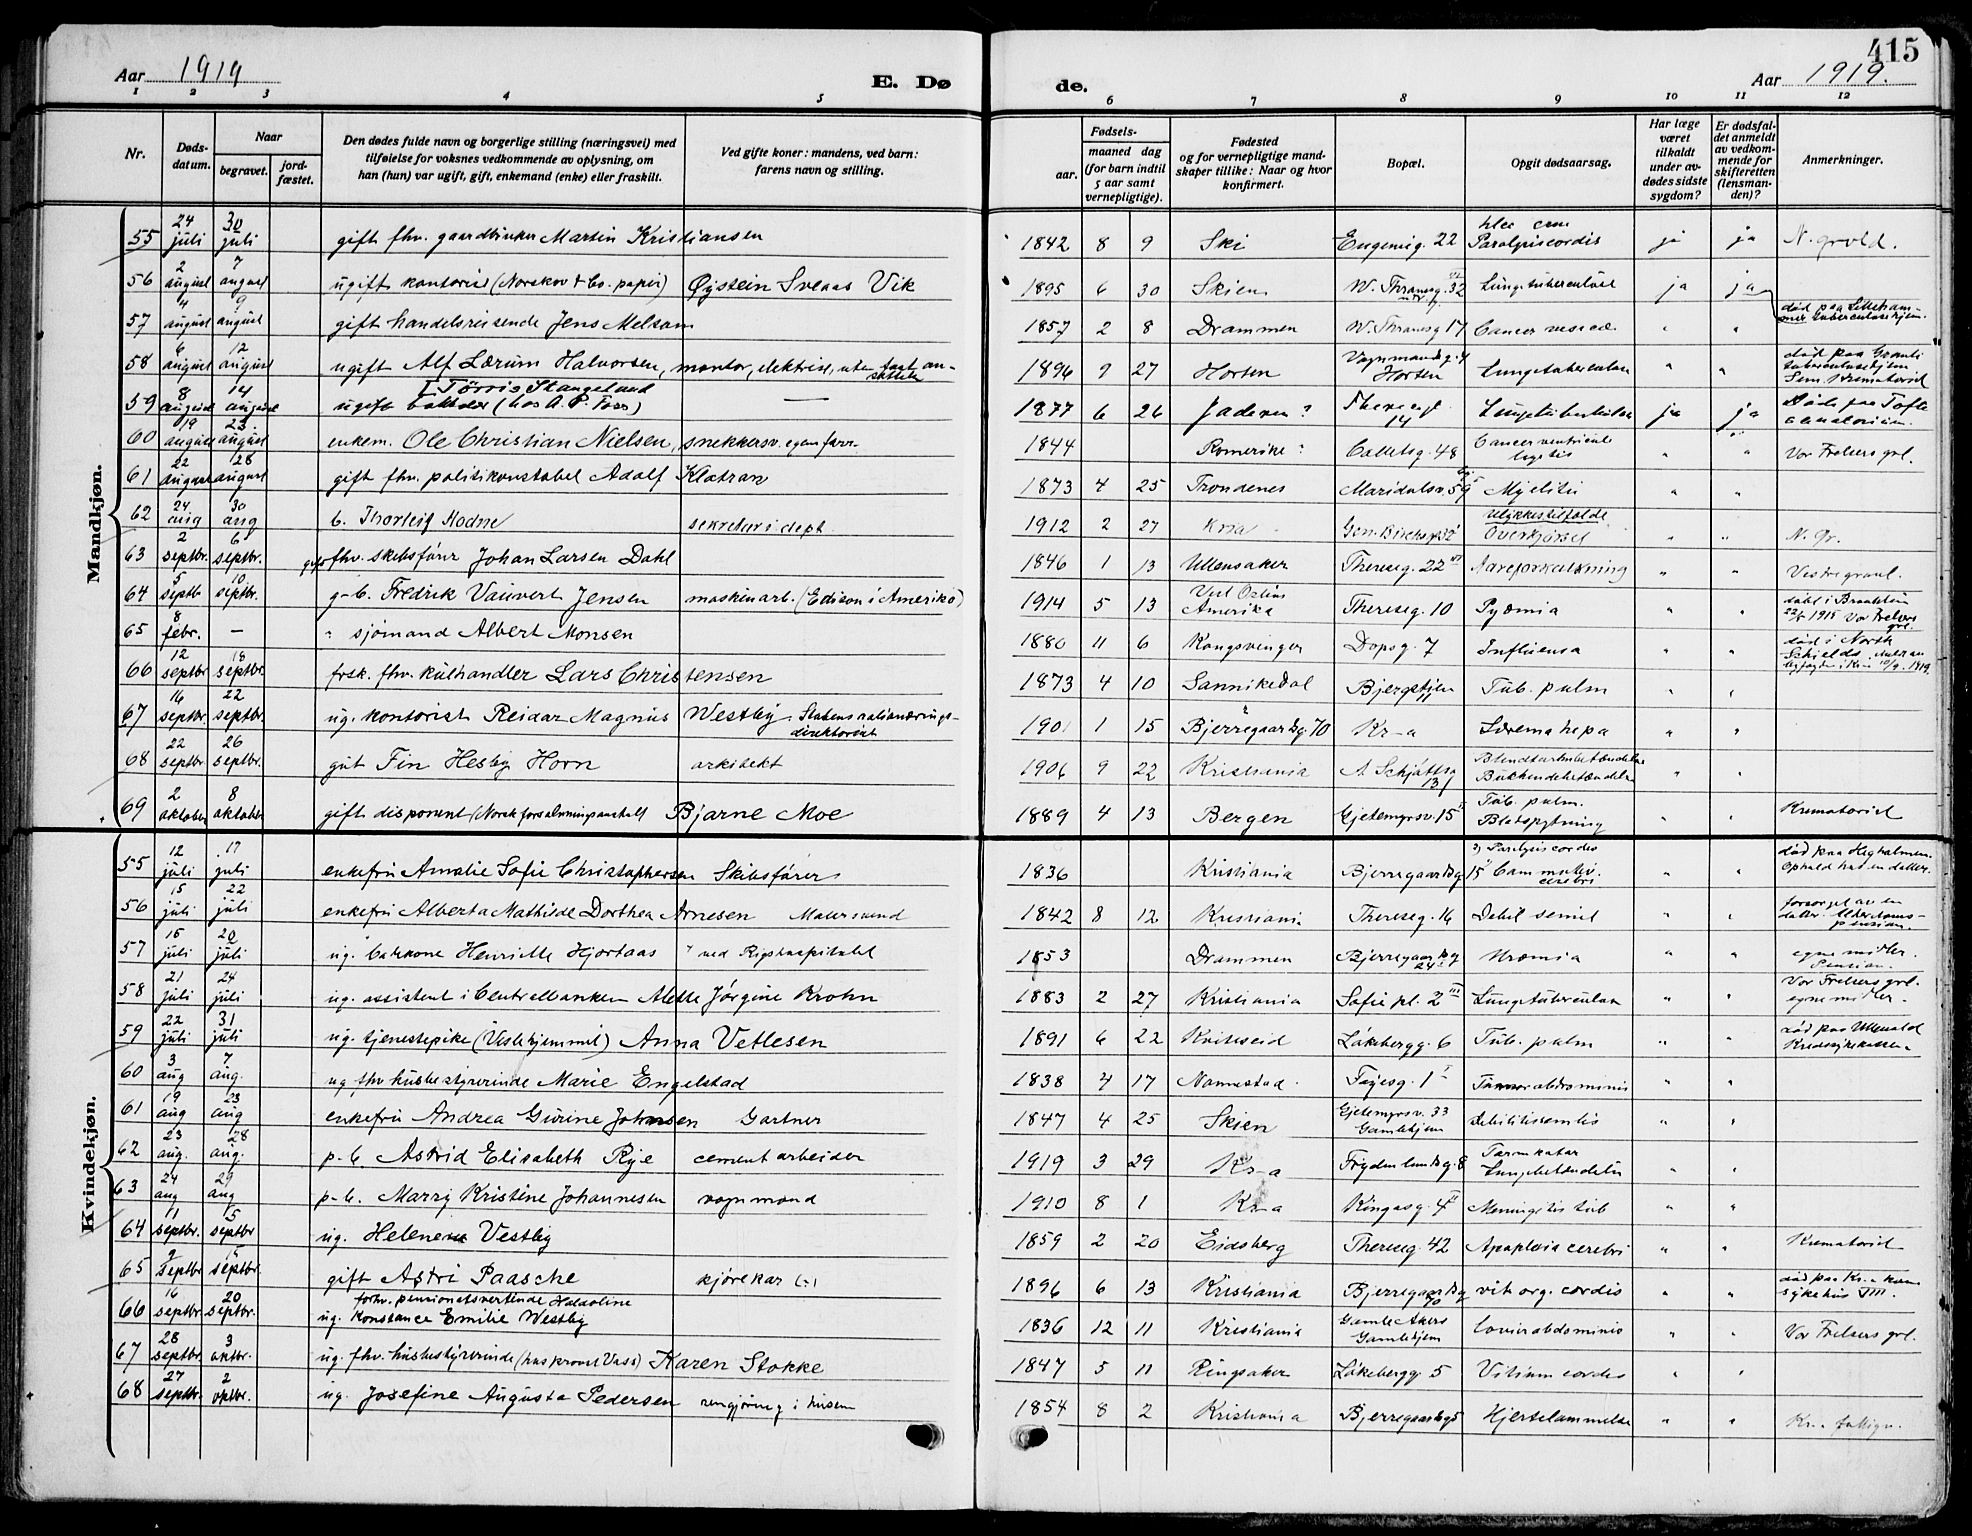 415
Aar 1919 E. Dø de. Aar 1919.
1 2 3 4 5 6 7 8 9 10 11 12
Nr.
Døds-
datum.
Naar
begravet.
jord-
fæstet.
Den dødes fulde navn og borgerlige stilling (næringsvei) med
tilføielse for voksnes vedkommende av oplysning, om
han (hun) var ugift, gift, enkemand (enke) eller fraskilt.
Ved gifte koner: mandens, ved barn:
farens navn og stilling.
Fødsels-
aar.
maaned dag
(for barn indtil
5 aar samt
vernepligtige).
Fødested
og for vernepligtige mand-
skaper tillike: Naar og hvor
konfirmert.
Bopæl.
Opgit dødsaarsag.
Har læge
været
tilkaldt
under av-
dødes sidste
sygdom?
Er dødsfal-
det anmeldt
av vedkom-
mende for
skifteretten
(lensman-
den)?
Anmerkninger.
Mandkjøn.
55 24 juli 30 juli gift fhv. gaardbruker Martin Kristiansen 1842 8 9 Ski 22 Paralysis cordis ja ja
56 2 august 7 august ugift kontorist (Norskov & Co. papir) Øistein Sveaas Vik 1895 6 30 Skien W. Thranesg. 32 Lungetuberculose ja ja
57 4 august 9 august gift handelsreisende Jens Melsom 1857 2 8 Drammen W. Thranesg 17 Cancer vesicæ " " død paa Lilleham-
mer tuberculosehjem.
58 6 august 12 august ugift Alf Lærum Halvorsen, montør, elektrise, uten fast an-
sættelse 1896 9 27 Horten Vognmandsg. 4
Horten Lungetuberculose " " død paa Grønli
tuberculosehjem
Krematoriet
59 8 august 14 august Tørris Stangeland
ugift (hos A. P. Foss) — 1877 6 26 Jæderen ? 14 Lungetuberkulose ja ja Døde paa Tofte
sanatorium.
60 19 august 23. august enkem. Ole Christian Nielsen, snekkersv. egen forr. 1844 Romerike ? Colletsg. 48 Cancer ventriculi " " Vor Frelsers grl.
61 22 august 28 august gift fhv. politikonstabel Adolf Klatran 1873 4 25 Trondenes Maridalsv. 59 Myelitis " "
62 24 aug 30 aug b. Thorleif Hodne sekretær i dept 1912 2 27 Kria ulykkestilfælde
Overkjørsel " " N. Gr.
63 2 septbr. 6 septbr. gift fhv. skibsfører Johan Larsen Dahl 1846 1 13 Ullensaker Thereseg. 22 Aareforkalkning " " Vestre gravl.
64 5 septb 10 septbr. g-b. Fredrik Vauvert Jensen maskinarb. (Edison i Amerika) 1914 5 13 Amerika Thereseg. 10 Pyæmia " "
1915 Vor Frelsers
grl.
65 8 febr. — " sjømand Albert Monsen 1880 11 6 Kongsvinger Dopsg. 7 Influensa " " død i North
Schjelds
1919.
66 12 septbr. 18 septbr. frsk. fhv. kulhandler Lars Christensen 1873 4 10 Sannikedal Tub. pulm " "
67 16 septbr. 22 septbr. ug. kontorist Reidar Magnus Westby. Statens rationerings-
direktorat 1901 1 15 Bjerregaardsg. 70 Kr-a " "
68 22 septbr 26 septbr. gut Fin Hesby Horn arkitekt 1906 9 22 Kristiania A Schjøttsg
13 Blindtarmbetændelse
Bukhindebetændelse " "
69 2 oktober 8 oktober gift disponent (Norsk forsalmningsanstalt Bjarne Moe 1889 4 13 Bergen Gjetemyrsv. 15 Tub. pulm.
Blodspytning " " Krematoriet
Kvindekjøn.
55 12 juli 17 juli enkefru Amalie Sofie Christophersen Skibsfører 1836 Kristiania Bjerregaardsg 15 Paralysis cordis
cerebri " " død paa Hegholmen.
Ophold hos en datter.
56 15 juli 22 juli enkefru Alberta Mathilde Dorthea Arnesen Malersvend 1842 8 12 Kristiania Thereseg. 16 Debil senil " " forsørget av en
datter. Alderdoms-
pension.
57 15 juli 20 juli ug. Henriette Hjortaas ved Rigshospitalet 1853 Drammen Bjerregaardsg
24 Uræmia " " egne midler.
Pension.
58 21 juli 24 juli ug. assistent i Centralbanken Alette Jørgine Krohn 1883 2 27 Kristiania Sofie pl. 2 III Lungetuberculose " " Vor Frelsers grl.
egne midler.
59 22 juli 31 juli ug. tjenestepike (Vestehjemmet) Anna Vetlesen 1891 6 22 Kviteseid Låkebergg. 6 Tub. pulm " " død paa Ullevål
Kredssykekassen
60 3 aug 7 aug. ug fhv husbestyrerinde Marie Engelstad 1838 4 17 Nannestad Fayesg. 1 Tumor abdominis " "
61 19 aug 23 aug enkefru Andrea Gurine Johnsen Gartner 1847 4 25 Skien Gjetemyrsv. 33
Gamlehjem debilitis senilis " "
62 23 aug. 28 aug. p-b Astrid Elisabeth Rye cementarbeider 1919 3 29 Kr-a Frydenlundsg. 8 Tarmkatar
Lungebetændelse " "
63 24 aug 29 aug p-b. Marry Kristine Johannesen vognmand 1910 8 1 Kr-a Ringsg. 4 II Meningitis tub " "
64 1 septbr. 5 septbr ug. Helene Vestby 1859 2 20 Eidsberg Thereseg. 42 Apoplexia cerebri " " Krematoriet
65 9 septbr 15 septbr. gift Astri Paasche kjørekar 1896 6 13 Kristiania Bjerregaardsg
70 vit org. cordis " " død paa Kr.a kom
sykehus VIII.
66 16 septbr. 20 septbr. forhv. pensionatsvertinde
ug. Konstance Emilie Westby 1836 12 11 Kristiania Gamle Akers
Gamlehjem abdominis " " Vor Frelsers grl.
67 28 septbr. 3 oktbr. ug. fhv. husbestyrerinde (hos Voss) Karen Stokke 1847 5 11 Ringsaker Låkebergg. 5 Vitium cordis " "
68 27 septbr. 2 oktbr. ug. Josefine Augusta Pedersen rengjøring i husene 1854 8 2 Kristiania Bjerregaardsg 5 Hjertelammelse " "